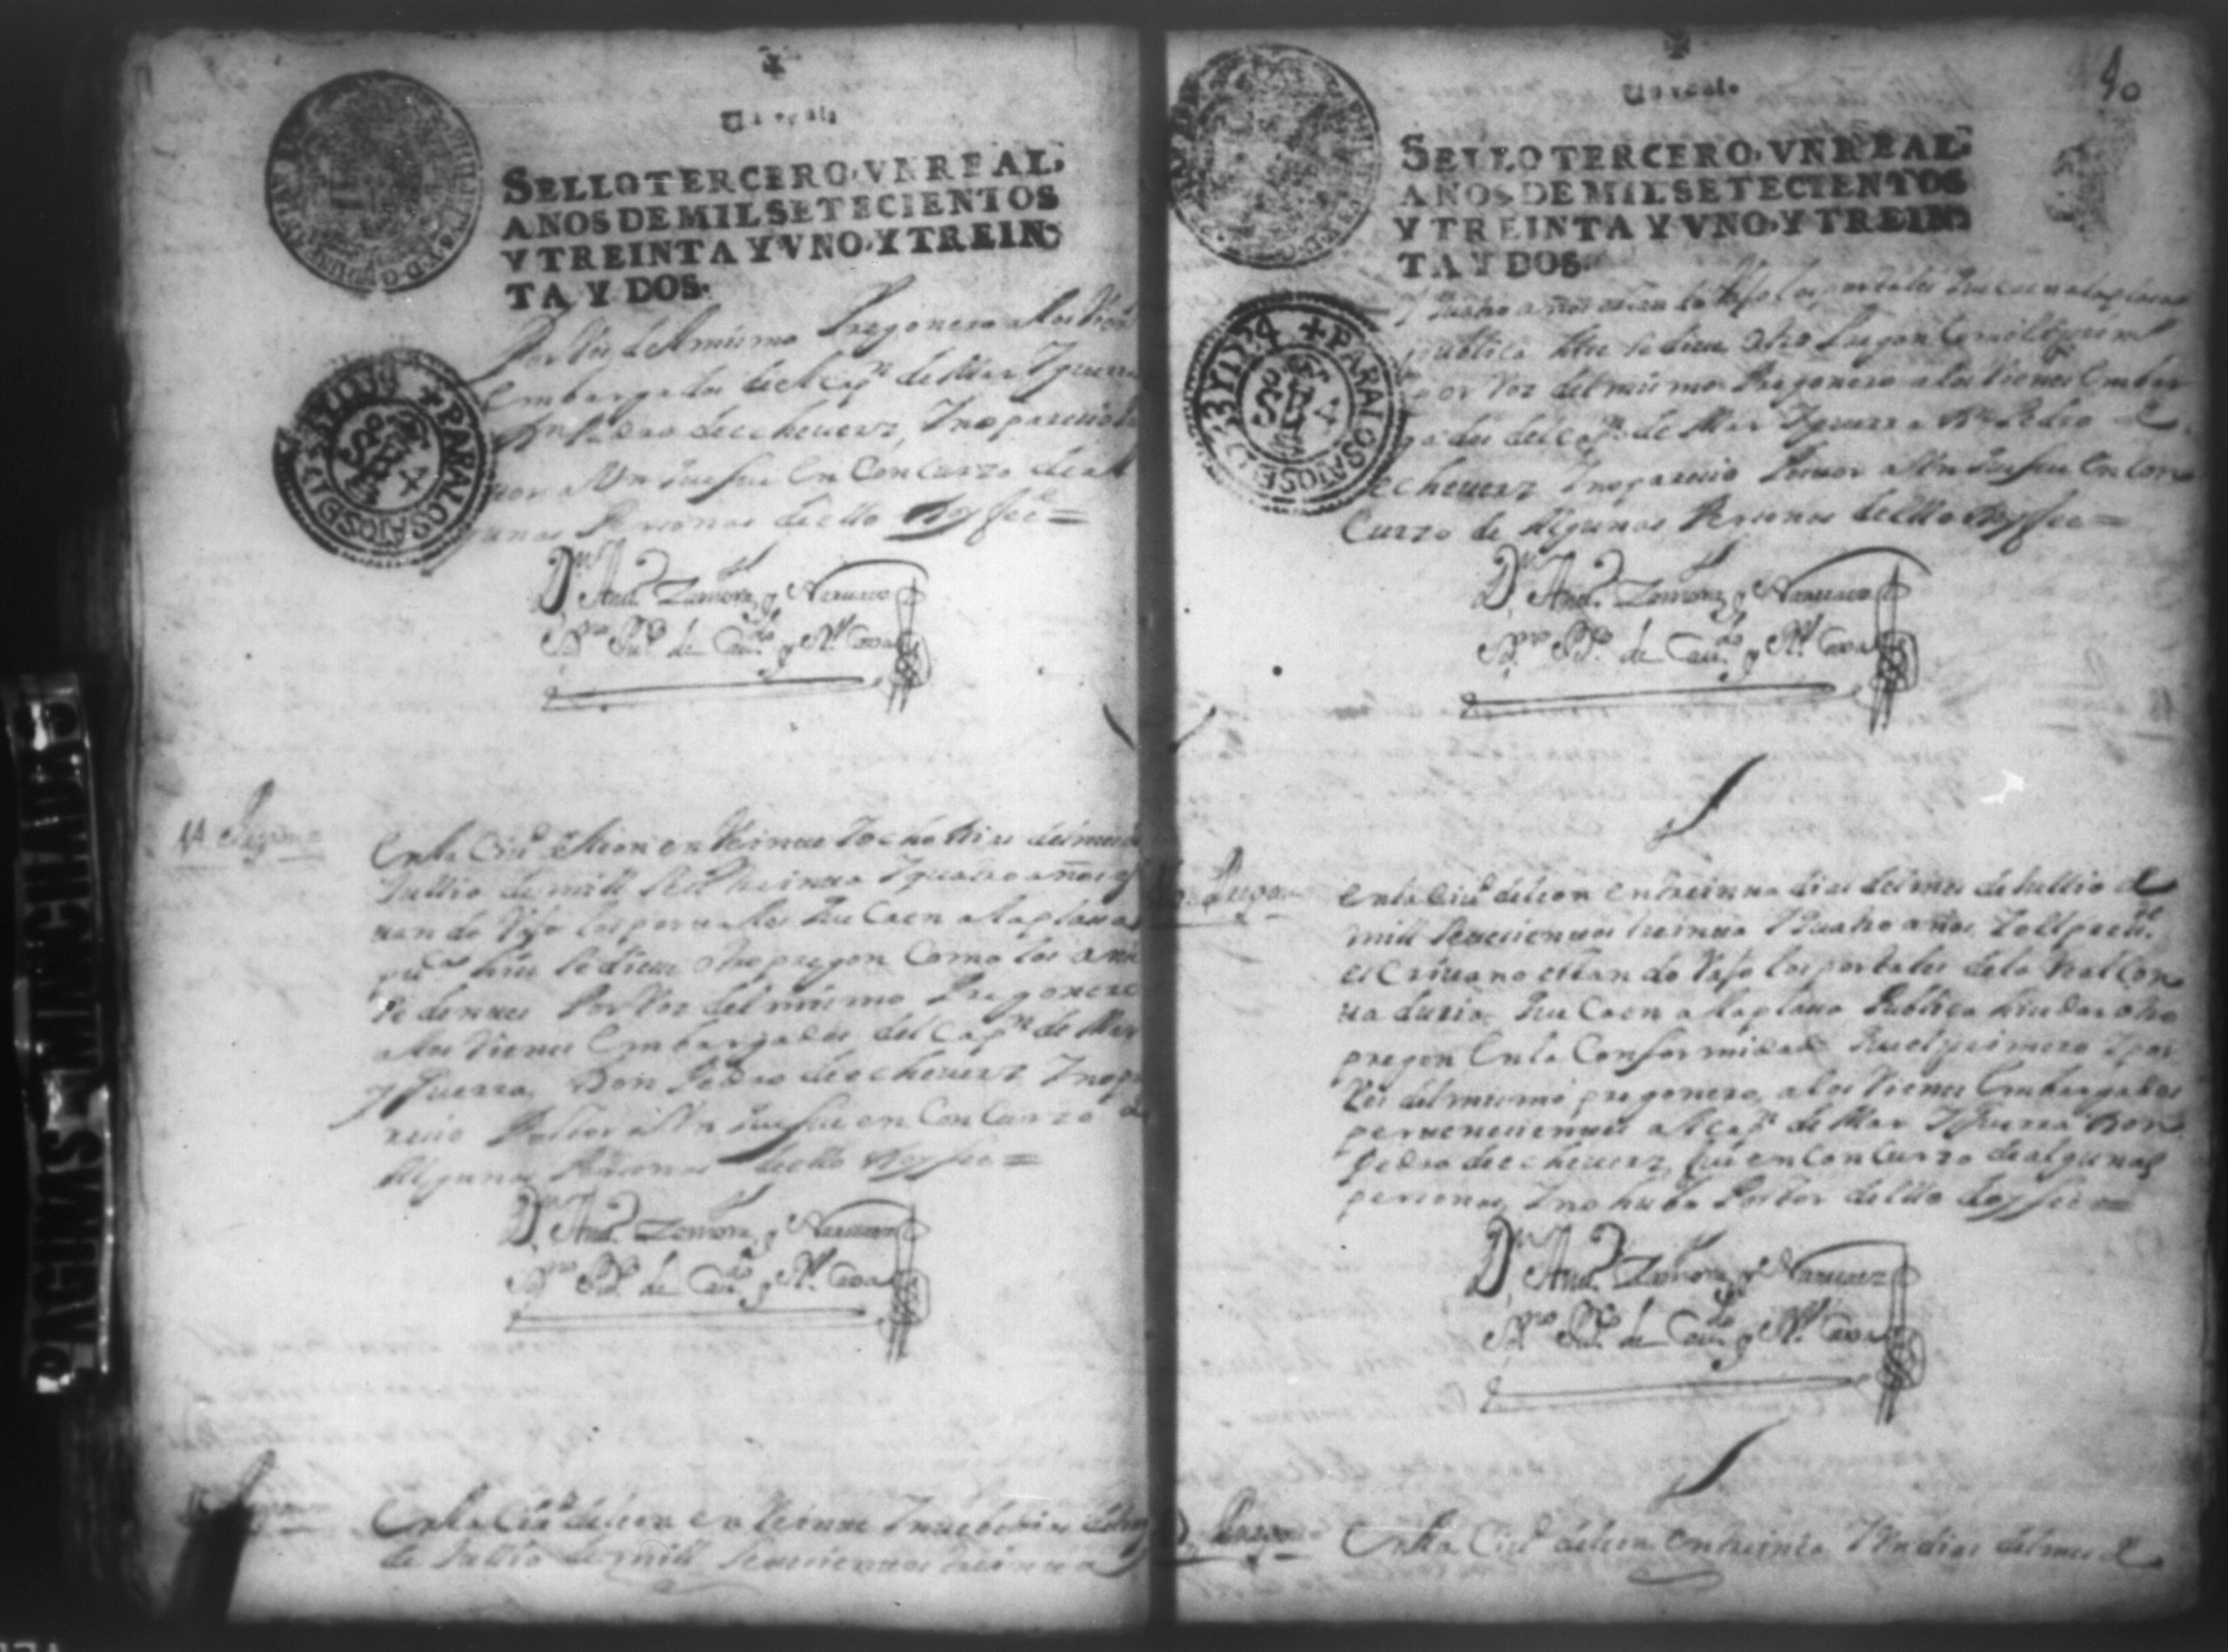 Un real.
SELLO TERCERO. VN REAL.
AÑOS DE MIL SETECIENTOS
Y TREINTA Y VNO. Y TREIN
TA Y DOS.
PARALOSAIOSED1733YIZ34
Por vos del mismo Pregonero a los Vien
Embargados del Cap.n de Mar Y guerra
Dn Pedro de echeuerz, Y no parecio
por a lln que fue en Concurzo de al
gunas Personas de ello doy fee =
Dn And. Zamora y Narvaez
de Cau.do y Rl Caxa
14 Pregon
En la Ciud de leon en Veinte Y ocho Dias del mes
Jullio de mill Setts treinta Y quatro años
tando Vajo los portales que Caen a la plasa
pu.ca hise se diese otro pregon Como los ante
sedentes Por Vos del mismo Pregonero
a los Vienes Embargados del Cap.n de Mar
Y guerra Don Pedro de echeuerz Y no pa
recio Postor a lln que fue en Concurzo de
Algunas Personas de ello doy fee =
Dn And. Zamora y Narvaez
de Cau.do y Rl Caxa
En la Ciud de leon en Veinte Y nuebe dias del
de Jullio de mill Setecientos treinta
10
Un real.
SELLO TERCERO. VN REAL.
AÑOS DE MIL SETECIENTOS
Y TREINTA Y VNO. Y TREIN
TA Y DOS.
PARALOSAIOSED1733YIZ34
Y quatro años estando Vajo los portales que caen a la plasa
publica hise se diese otro Pregon Como el
por Vos del mismo Pregonero a los Vienes Embar
gados del Cap.n de Mar Y guerra Dn Pedro de
echeuerz Y no parecio Postor a lln que fue en Con
Curzo de Algunas Personas de ello doy fee =
Dn And. Zamora y Narvaez
de Cau.do y Rl Caxa
Pregon
En la Ciud de leon en treinta dias del mes de Jullio de
mill Setecientos treinta Y quatro años Yo el press.te
escriuano estando Vajo los portales de la Real Con
ta duria que Caen a la plasa Publica hise dar otro
pregon En la Conformidad que el primero Y por
Vos del mismo pregonero, a los Vienes Embargados
pertenecientes al Cap.n de Mar Y guerra Don
Pedro de echeuerz, fue en Con Curzo de algunas
personas, Y no hubo Postor de ello doy fee =
Dn And. Zamora y Narvaez
de Cau.do y Rl Caxa
Pregon
En la Ciud de leon en treinta Y Vn dias del mes de
PAGINAS MANCHADAS